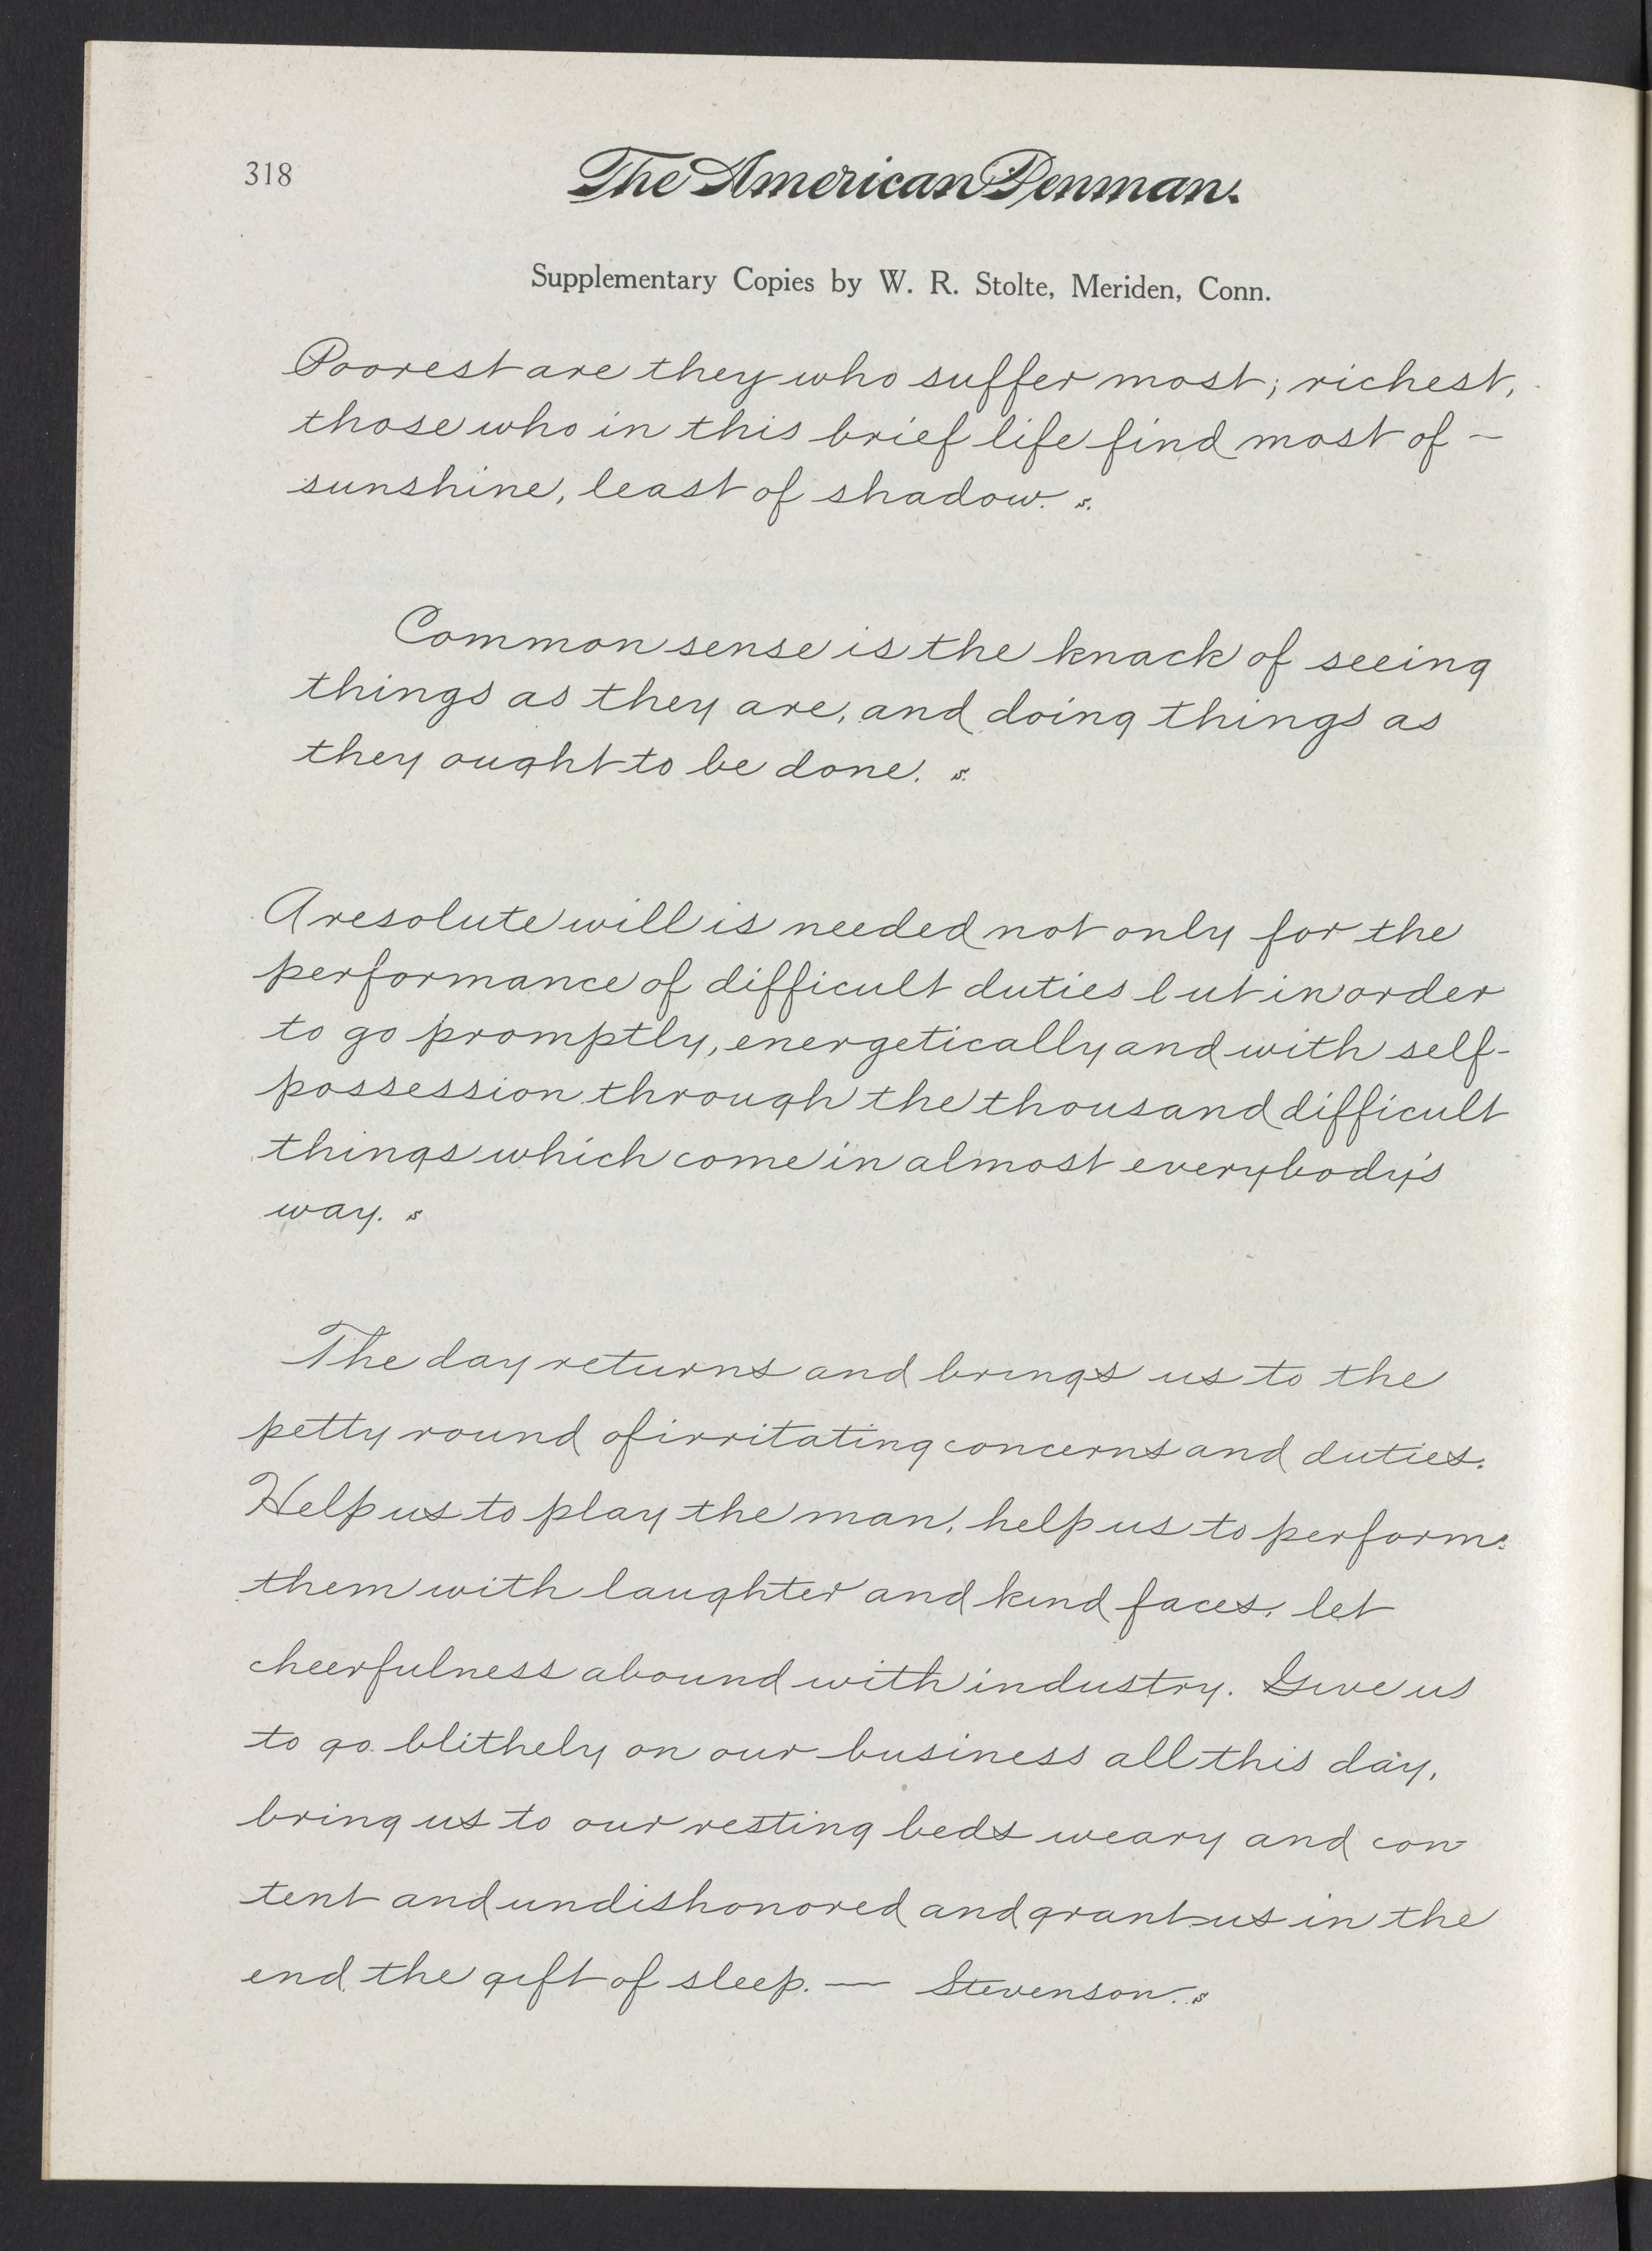 318
The American Penman.
Supplementary Copies by W. R. Stolte, Meriden, Conn.
Poorest are they who suffer most; richest,
those who in this brief life find most of –
sunshine, least of shadow. s.
Common sense is the knack of seeing
things as they are, and doing things as
they ought to be done. s.
A resolute will is needed not only for the
performance of difficult duties but in order
to go promptly, energetically and with self-
possession through the thousand difficult
things which come in almost everybody's
way. s
The day returns and brings us to the
petty round of irritating concerns and duties.
Help us to play the man, help us to perform
them with laughter and kind faces, let
cheerfulness abound with industry. Give us
to go blithely on our business all this day,
bring us to our resting beds weary and con
tent and undishonored and grant us in the
end the gift of sleep. — Stevenson. s